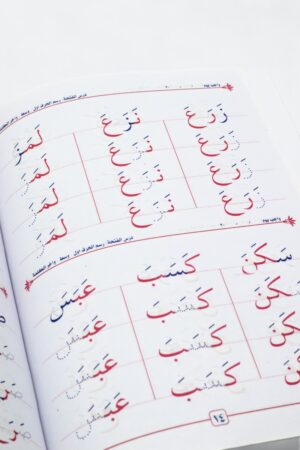 درس الفتحة رسم الحرف أول وسط وآخر الكلمة
زَرَعَ نَزَعَ لَمَزَ
زَرَعَ نَزَعَ لَمَزَ
زَرَعَ نَزَعَ لَمَزَ
زَرَعَ نَزَعَ لَمَزَ
درس الفتحة رسم الحرف أول وسط وآخر الكلمة
سَكَنَ كَسَبَ عَبَسَ
سَكَنَ كَسَبَ عَبَسَ
سَكَنَ كَسَبَ عَبَسَ
سَكَنَ كَسَبَ عَبَسَ
١٤